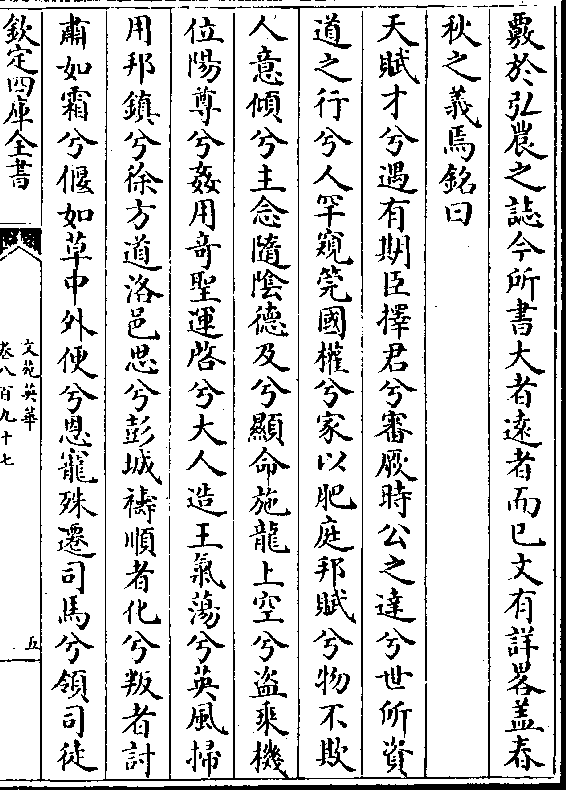 覈於弘農之誌今所書大者遠者而已文有詳畧葢春
秋之義焉銘曰
天賦才兮遇有期臣擇君兮審厥時公之達兮世所資
道之行兮人罕窺筦國權兮家以肥庭邦賦兮物不欺
人意傾兮主念隨陰德及兮顯命施龍上空兮盗乘機
位陽尊兮姦用竒聖運啓兮大人造王氣蕩兮英風掃
用邦鎮兮徐方道洛邑思兮彭城禱順者化兮叛者討
肅如霜兮偃如草中外便兮恩寵殊遷司馬兮領司徒
欽定四庫全書
文苑英華
卷八百九十七
五